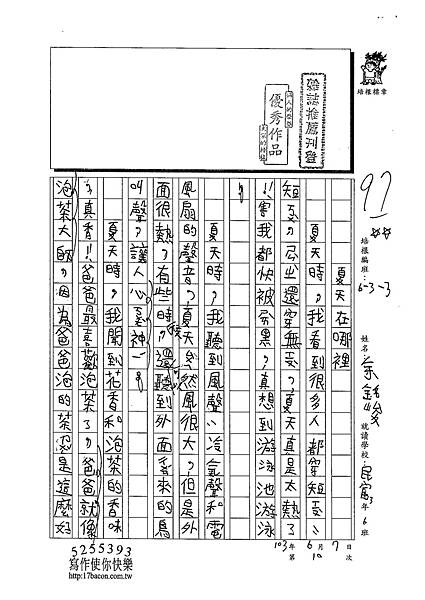 培根標章
雜誌推薦刊登
優秀作品
97
培根編班:6-3-3
姓名
就讀學校
年6班
103年6月7日
第10次
夏天在哪裡
夏天時,我看到很多人都穿短
短
還穿無
夏天真是太熱了
!!害我都快被
黑,真想到游泳池游泳
。
夏天時,我聽到風聲、冷氣聲和電
風扇的聲音,夏天
然風很大,但是外
面很熱,有些時候,還可以聽到外面
來的鳥
叫聲,讓人心
神一。
夏天時,我聞到花香和泡茶的香味
,真香!!爸爸最喜歡泡茶了,爸爸就像
泡茶大師,因為爸爸泡的茶
是這麼好
5255393
寫作使你快樂
http://17bacon.com.tw